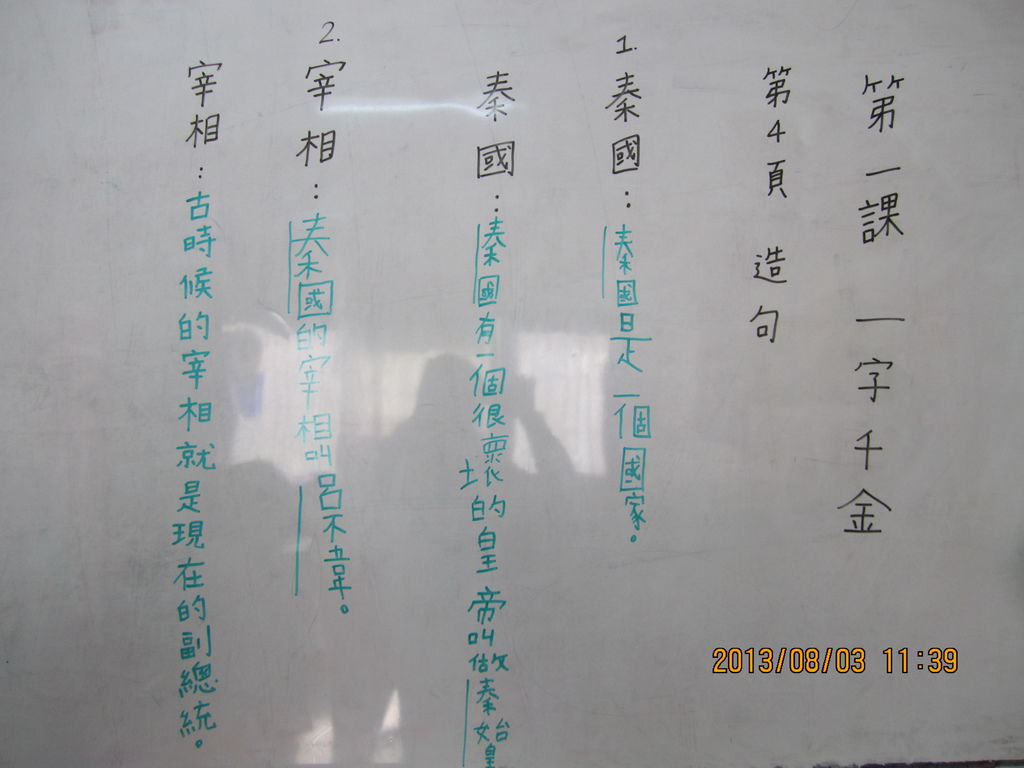 第一課 一字千金
第4頁 造句
1. 秦國：秦國是一個國家。
秦國：秦國有一個很壞的皇帝叫做秦始皇
2. 宰相：秦國的宰相叫呂不韋。
宰相：古時候的宰相就是現在的副總統。
2013/08/03 11:39